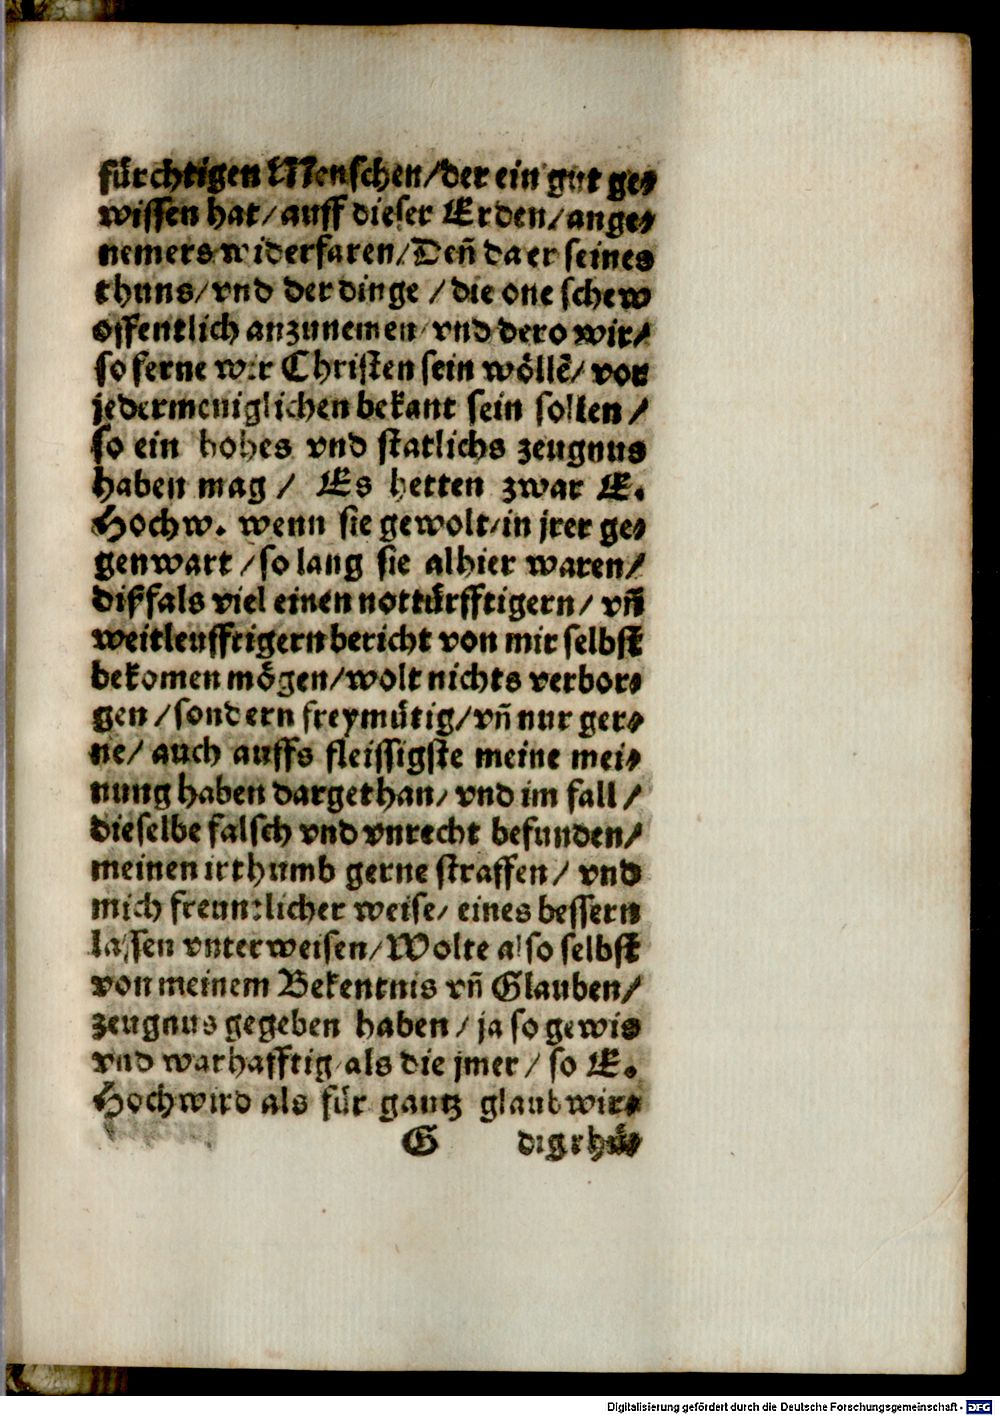 fürchtigen Menschen/der ein gut ge⸗
wissen hat/ auff dieser Erden/ange⸗
nemers widerfaren/Deñ da er seines
thuns/vnd der dinge /die one schew
offentlich anzunemen/vnd dero wir/
so ferne wir Christen sein wöllē/ vor
jedermeniglichen bekant sein sollen /
so ein hohes vnd statlichs zeugnus
haben mag / Es hetten zwar E.
Hochw. wenn sie gewolt/in jrer ge⸗
genwart /so lang sie alhier waren/
dißfals viel einen nottürfftigern/ vñ
weitleufftigern bericht von mir selbst
bekomen mögen/wolt nichts verbor⸗
gen /sondern freymütig/vñ nur ger⸗
ne/ auch auffs fleissigste meine mei⸗
nung haben dargethan/ vnd im fall /
dieselbe falsch vnd vnrecht befunden/
meinen irthumb gerne straffen/ vnd
mich freuntlicher weise/ eines bessern
lassen vnterweisen/Wolte also selbst
von meinem Bekentnis vñ Glauben/
zeugnus gegeben haben/ ja so gewis
vnd warhafftig/als die jmer/ so E.
Hochwird als für gantz glaubwir⸗
G digrhü⸗
Digitalisierung gefördert durch die Deutsche Forschungsgemeinschaft - DFG